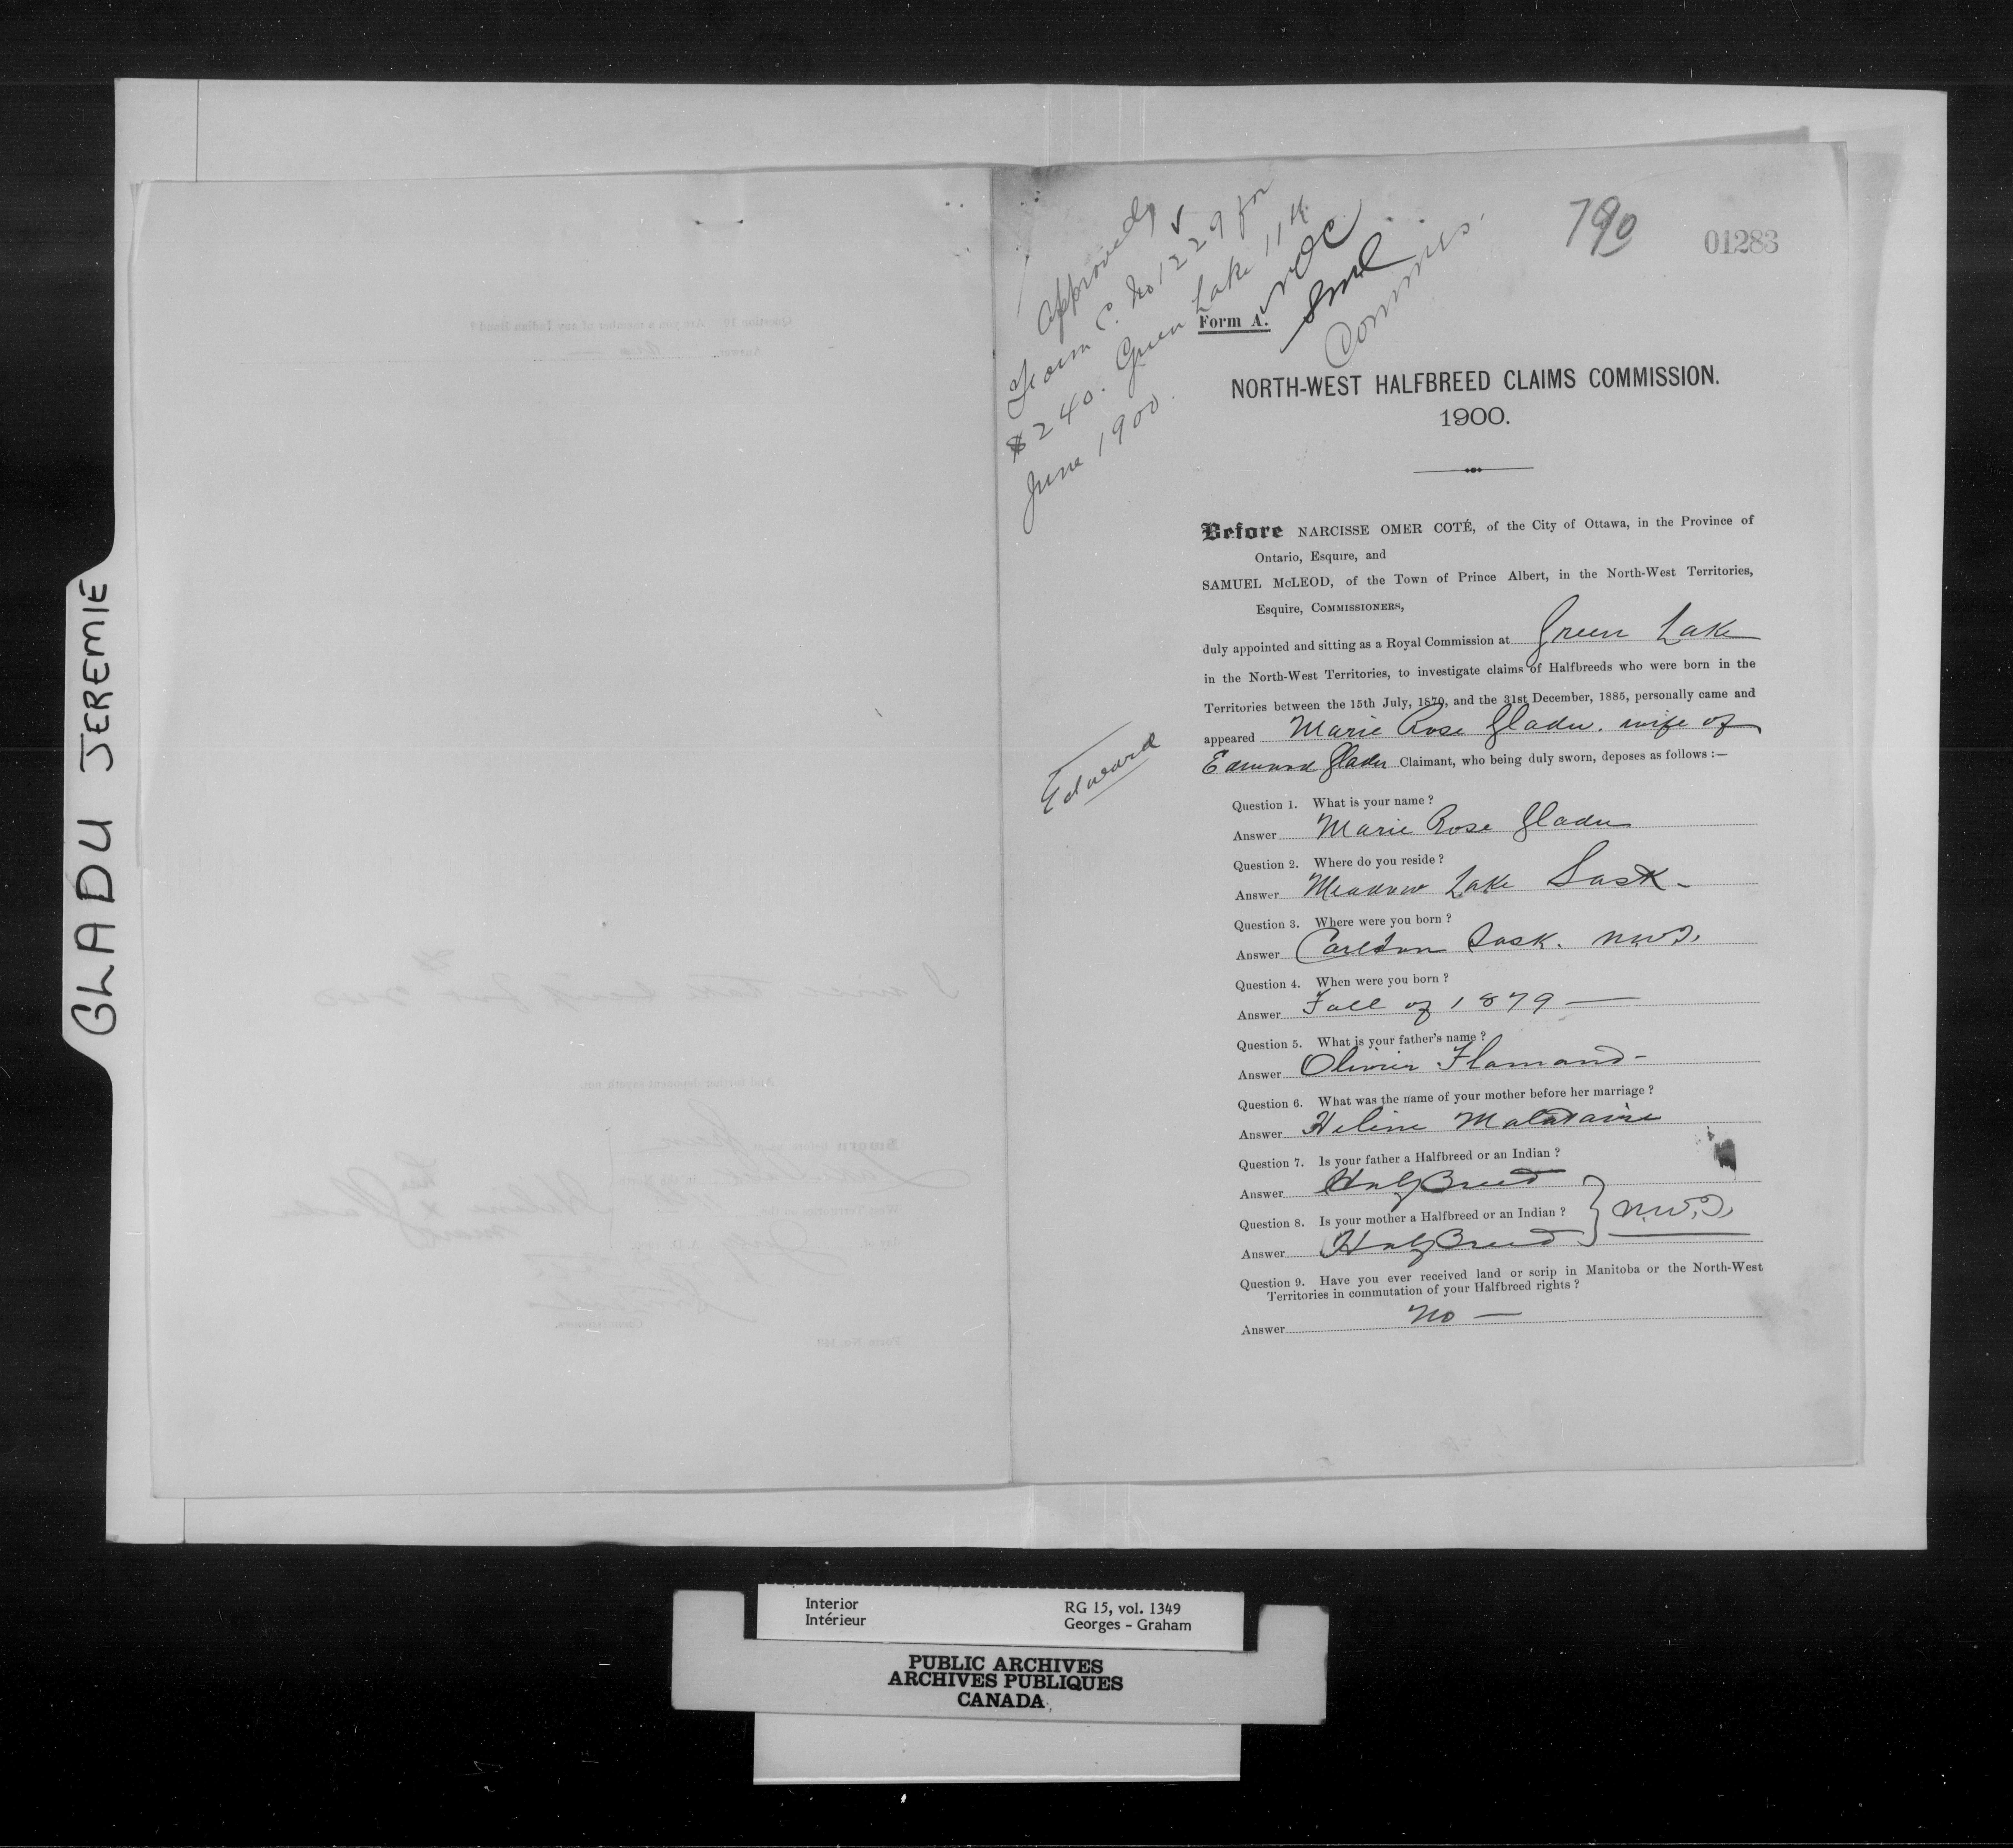 GLADU JEREMIE
Approved
Form C. No 1229 for
$240. Green Lake 11th
June 1900.
NOC
SMcL
Commrs.
790
01283
Form A.
NORTH-WEST HALFBREED CLAIMS COMMISSION.
1900.
Before NARCISSE OMER COTÉ, of the City of Ottawa, in the Province of
Ontario, Esquire, and
SAMUEL McLEOD, of the Town of Prince Albert, in the North-West Territories,
Esquire, COMMISSIONERS,
duly appointed and sitting as a Royal Commission at Green Lake
in the North-West Territories, to investigate claims of Halfbreeds who were born in the
Territories between the 15th July, 1870, and the 31st December, 1885, personally came and
appeared Marie Rose Gladu. wife of
Edward Gladu Claimant, who being duly sworn, deposes as follows :—
Edward
Question 1. What is your name ?
Answer Marie Rose Gladu
Question 2. Where do you reside ?
Answer Meadow Lake Sask -
Question 3. Where were you born ?
Answer Carlton Sask. N.W.T.
Question 4. When were you born ?
Answer Fall of 1879 —
Question 5. What is your father's name ?
Answer Olivier Flamand -
Question 6. What was the name of your mother before her marriage ?
Answer Helene Malataire
Question 7. Is your father a Halfbreed or an Indian ?
Answer Half Breed
Question 8. Is your mother a Halfbreed or an Indian ?
Answer Half Breed } N.W.T.
Question 9. Have you ever received land or scrip in Manitoba or the North-West
Territories in commutation of your Halfbreed rights ?
Answer No —
Interior
Intérieur
RG 15, vol. 1349
Georges - Graham
PUBLIC ARCHIVES
ARCHIVES PUBLIQUES
CANADA